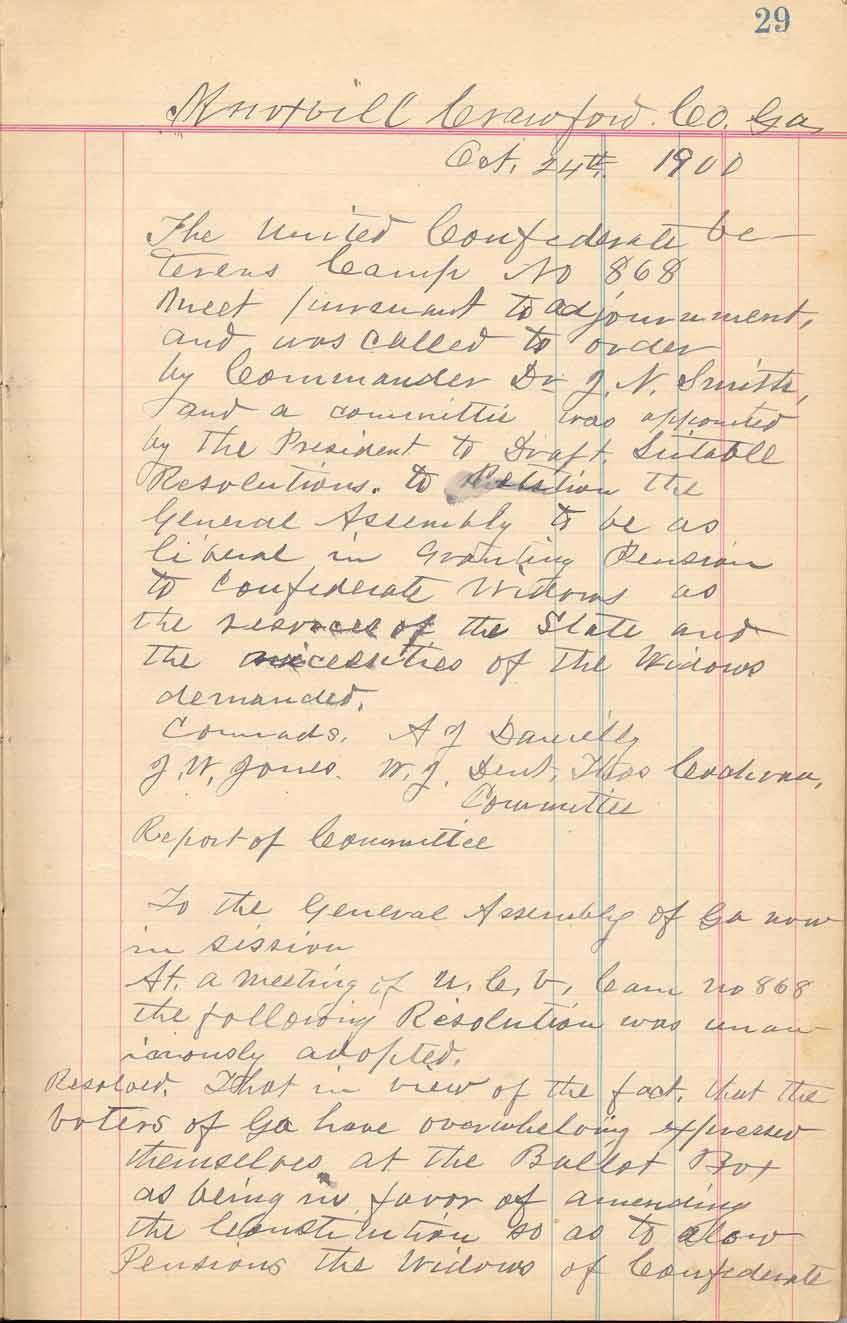 29
Knoxvill Crawford. Co. Ga
Oct. 24th. 1900
The United Confederate Ve-
terens Camp No 868
Meet pursuant to adjournment,
and was called to order
by Commander Dr J. N. Smith,
and a committie was appointed
by the President to Draft. Suitable
Resolutions. to Petition the
General Assembly to be as
liberal in Granting Pension
to Confederate Widows as
the resorces of the State and
the necessities of the Widows
demanded.
Comrads. A J Danielly
J. W. Jones. W. J. Dent, Thos
Committee
Report of Committee
To the General Assembly of Ga now
in sission
At. a meeting of U. C. V. Cam no 868
the following Resolution was unan-
iously adopted.
Resolved. That in view of the fact. that the
voters of Ga have overwheloing expressed
themselves at the Ballot Box
as being in favor of amending
the Constitution so as to alow
Pensions the Widows of Confederate